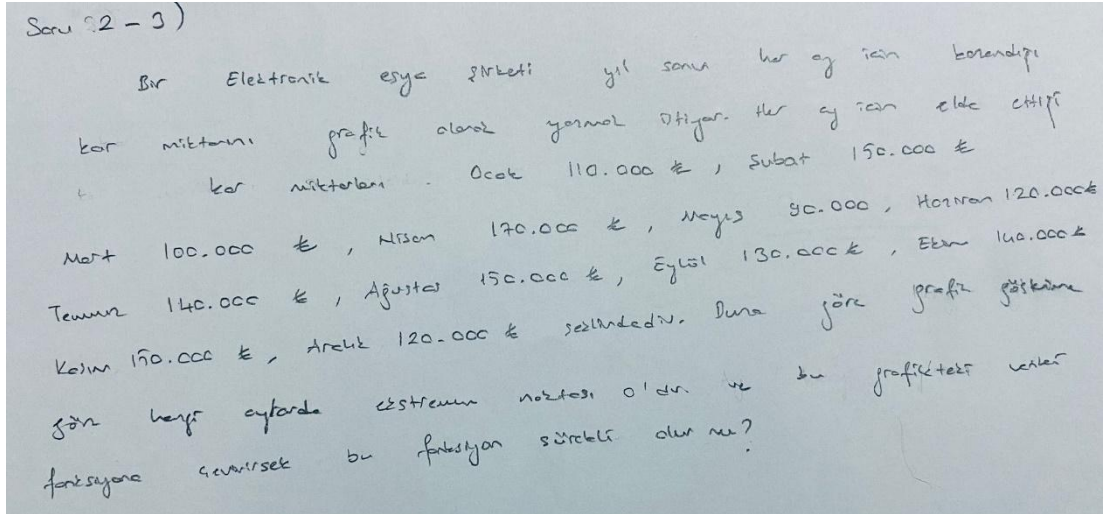 Soru 2-3)
Bir Elektronik eşya şirketi yıl sonu her ay için kazandığı
kar miktarını grafik olarak yazmak istiyor. Her ay için elde ettiği
kar miktarları. Ocak 110.000 ₺, Şubat 150.000 ₺
Mart 100.000 ₺, Nisan 170.000 ₺, Mayıs 90.000, Haziran 120.000 ₺
Temmuz 140.000 ₺, Ağustos 150.000 ₺, Eylül 130.000 ₺, Ekim 140.000 ₺
Kasım 150.000 ₺, Aralık 120.000 ₺ şeklindedir. Buna göre grafik
gör hangi aylarda ekstremum noktası 0'dır. ve bu grafikteki
fonksiyona çevirirsek bu fonksiyon sürekli olur mu?